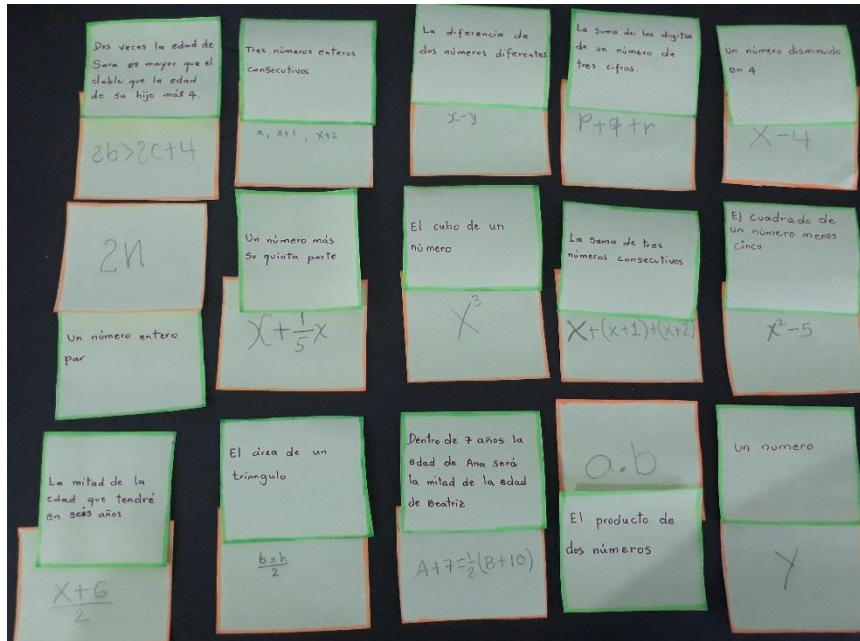 Dos veces la edad de
Sara es mayor que el
doble que la edad
de su hijo más 4.
2b>2c+4
Tres números enteros
consecutivos
x, x+1, x+2
La diferencia de
dos números diferentes
x-y
La suma de los dígitos
de un número de
tres cifras.
P+q+r
Un número disminuido
en 4
X-4
2n
Un número entero
par
Un número más
su quinta parte
x+1/5x
El cubo de un
número
X³
La suma de tres
números consecutivos
X+(x+1)+(x+2)
El cuadrado de
un número menos
cinco
x²-5
La mitad de la
edad que tendré
en seis años
x+6
2
El área de un
triángulo
bxh
2
Dentro de 7 años la
edad de Ana será
la mitad de la edad
de Beatriz
A+7=1/2(8+10)
a.b
El producto de
dos números
Un numero
Y